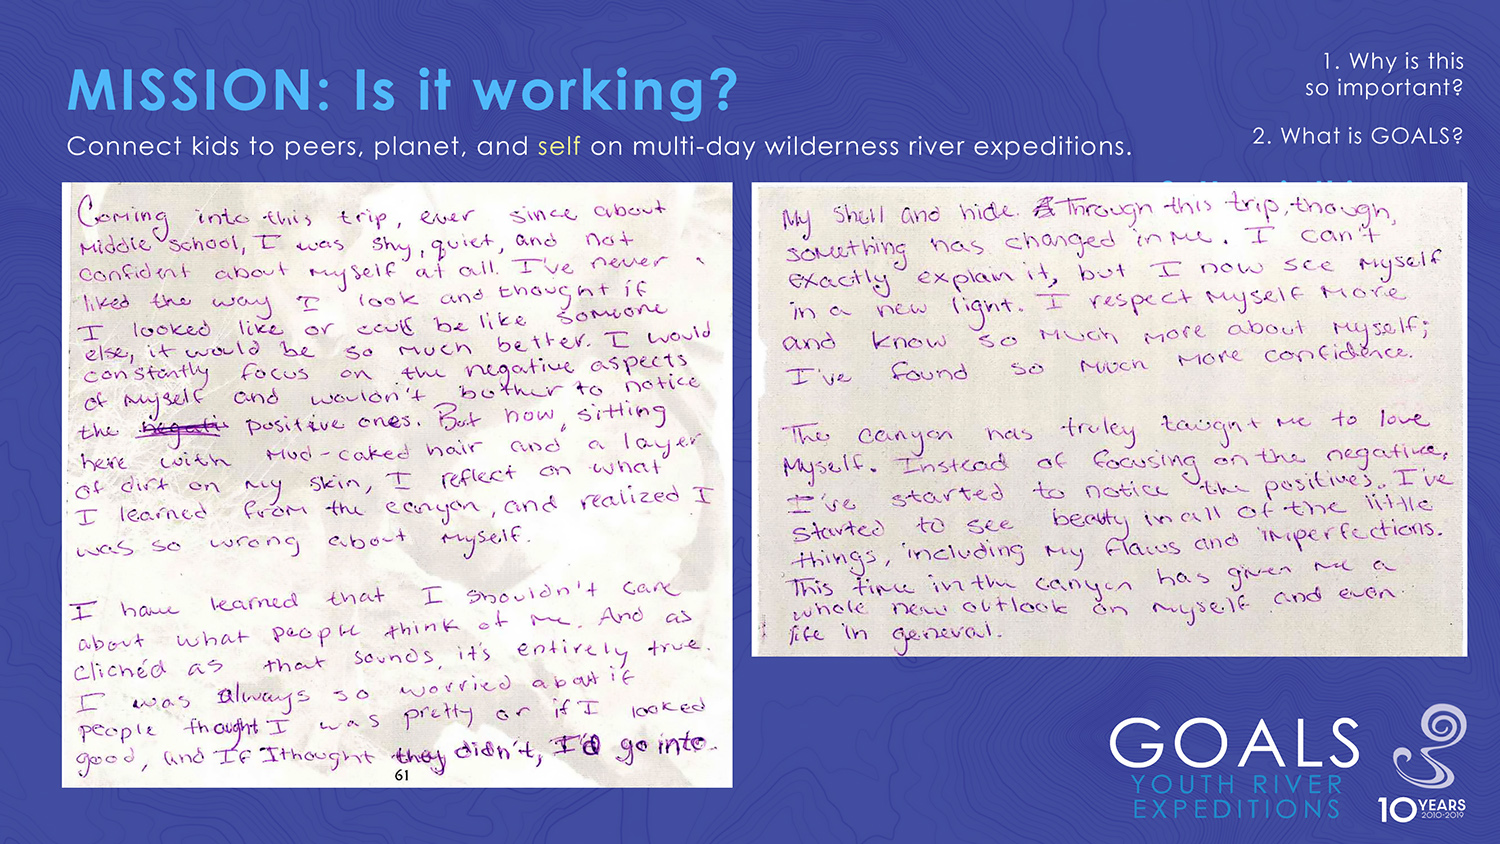 MISSION: Is it working?
Connect kids to peers, planet, and self on multi-day wilderness river expeditions.
1. Why is this
so important?
2. What is GOALS?
Coming into this trip, ever since about
middle school, I was shy, quiet, and not
confident about myself at all. I've never
liked the way I look and thought if
I looked like or could be like someone
else, it would be so much better. I would
constantly focus on the negative aspects
of myself and wouldn't bother to notice
the negati positive ones. But now, sitting
here with mud-caked hair and a layer
of dirt on my skin, I reflect on what
I learned from the canyon, and realized I
was so wrong about myself.
I have learned that I shouldn't care
about what people think of me. And as
clichéd as that sounds, it's entirely true.
I was always so worried about if
people thought I was pretty or if I looked
good, and If I thought they didn't, I'd go into
61
My shell and hide. Through this trip, though,
something has changed in me. I can't
exactly explain it, but I now see myself
in a new light. I respect myself more
and know so much more about myself;
I've found so much more confidence.
The canyon has truley taught me to love
myself. Instead of focusing on the negative,
I've started to notice the positives. I've
started to see beauty in all of the little
things, including my flaws and imperfections.
This time in the canyon has given me a
whole new outlook on myself and even
life in general.
GOALS
YOUTH RIVER
EXPEDITIONS
10 YEARS
2010-2019